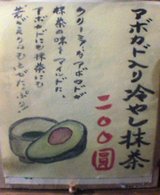 アボカド入り冷やし抹茶
二〇〇圓
クリーミィなアボカドが
抹茶の味をマイルドに。
アボカドにも抹茶にも